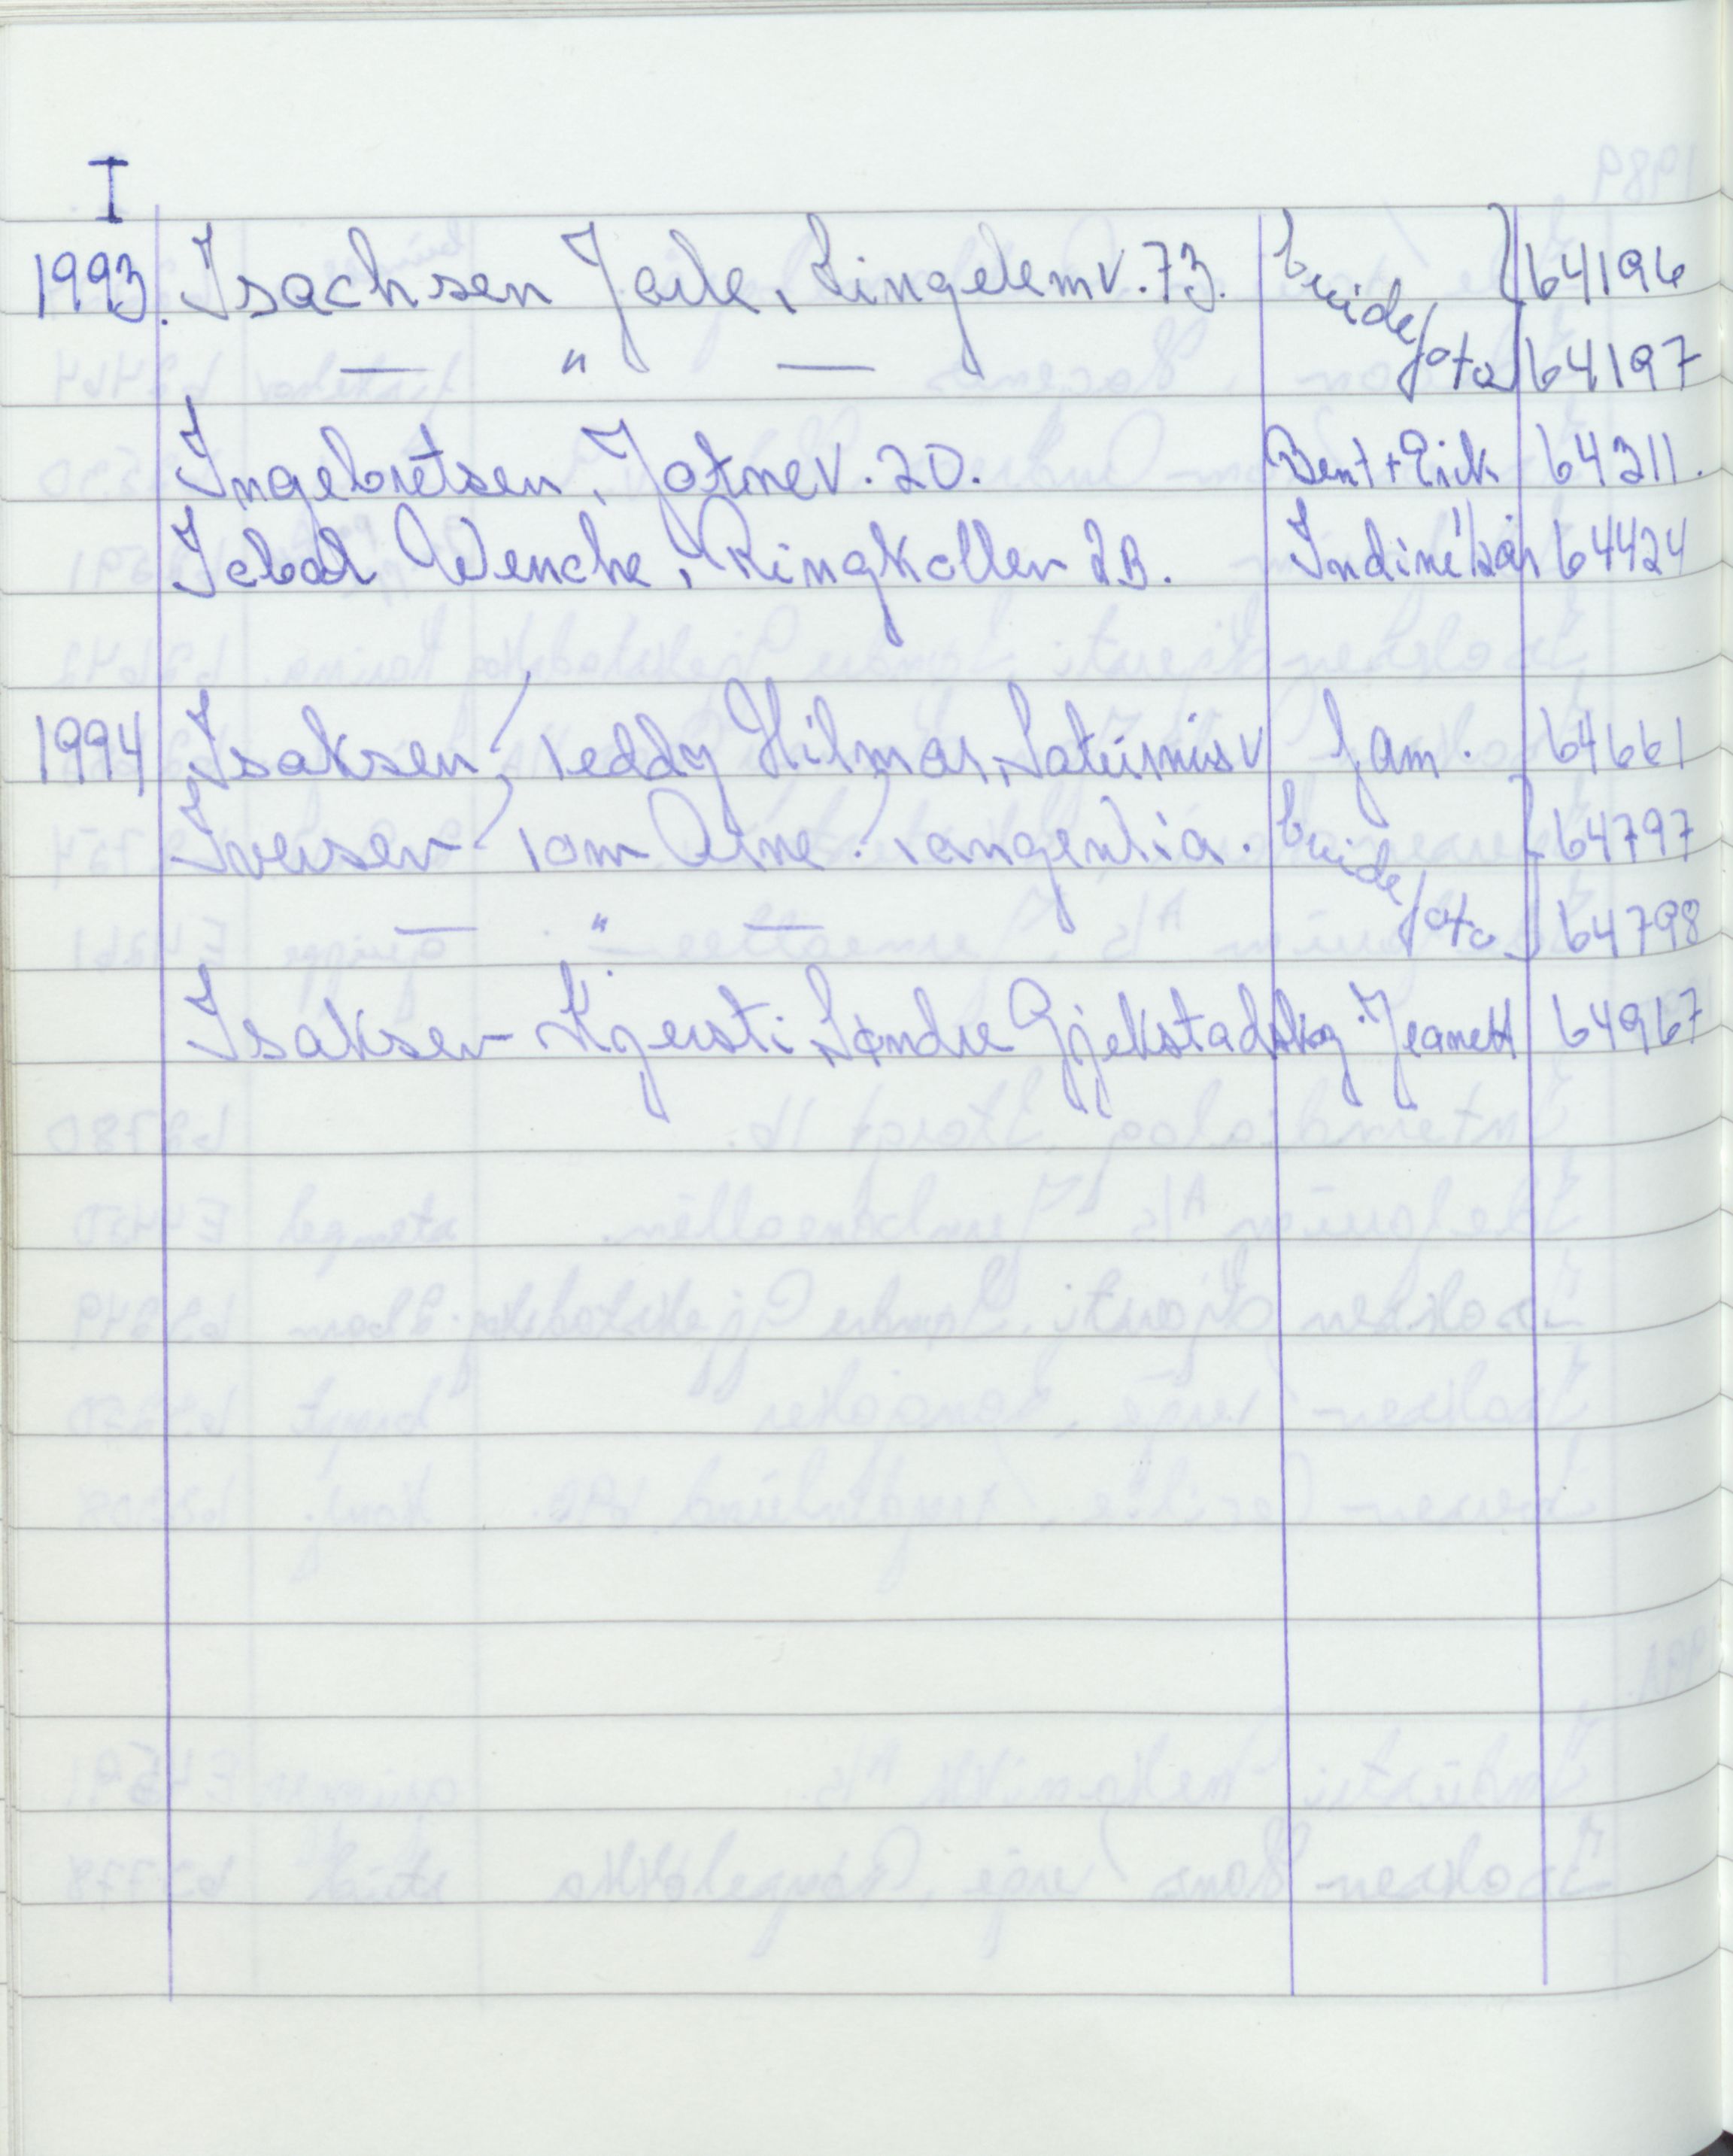 I
1993. Isachsen Jarle, Lingelemv. 73. brude 64196
— " — foto 64197
Ingebretsen, Jotnev. 20. Bent + Erik 64311.
Icbal Wenche, Ringkollen 2B. 64424
1994 Isaksen, Teddy Hilmar, Saturnusv fam. 64661
Iversen Tom Arne, Tangenlia. brude 64797
— " — foto 64798
Isaksen Kjersti, Søndre Gjekstadskg. Jeanett 64967